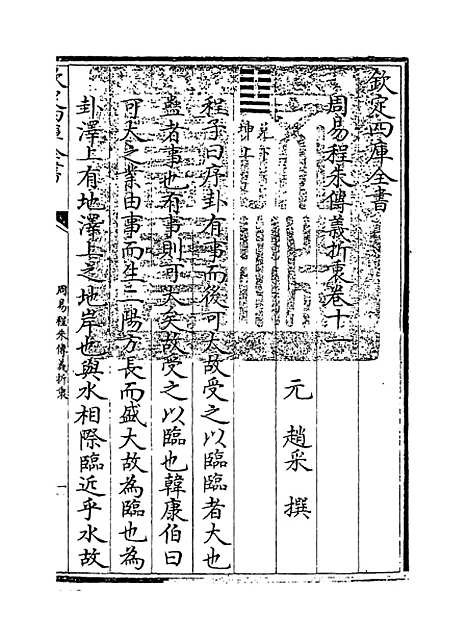 欽定四庫全書
周易程朱傳義折衷卷十一
元 趙采 撰
程子曰序卦有事而後可大故受之以臨臨者大也
蠱者事也有事則可大矣故受之以臨也韓康伯曰
可大之業由事而生二陽方長而盛大故為臨也為
卦澤上有地澤上之地岸也與水相際臨近乎水故
周易程朱傳義折衷
一